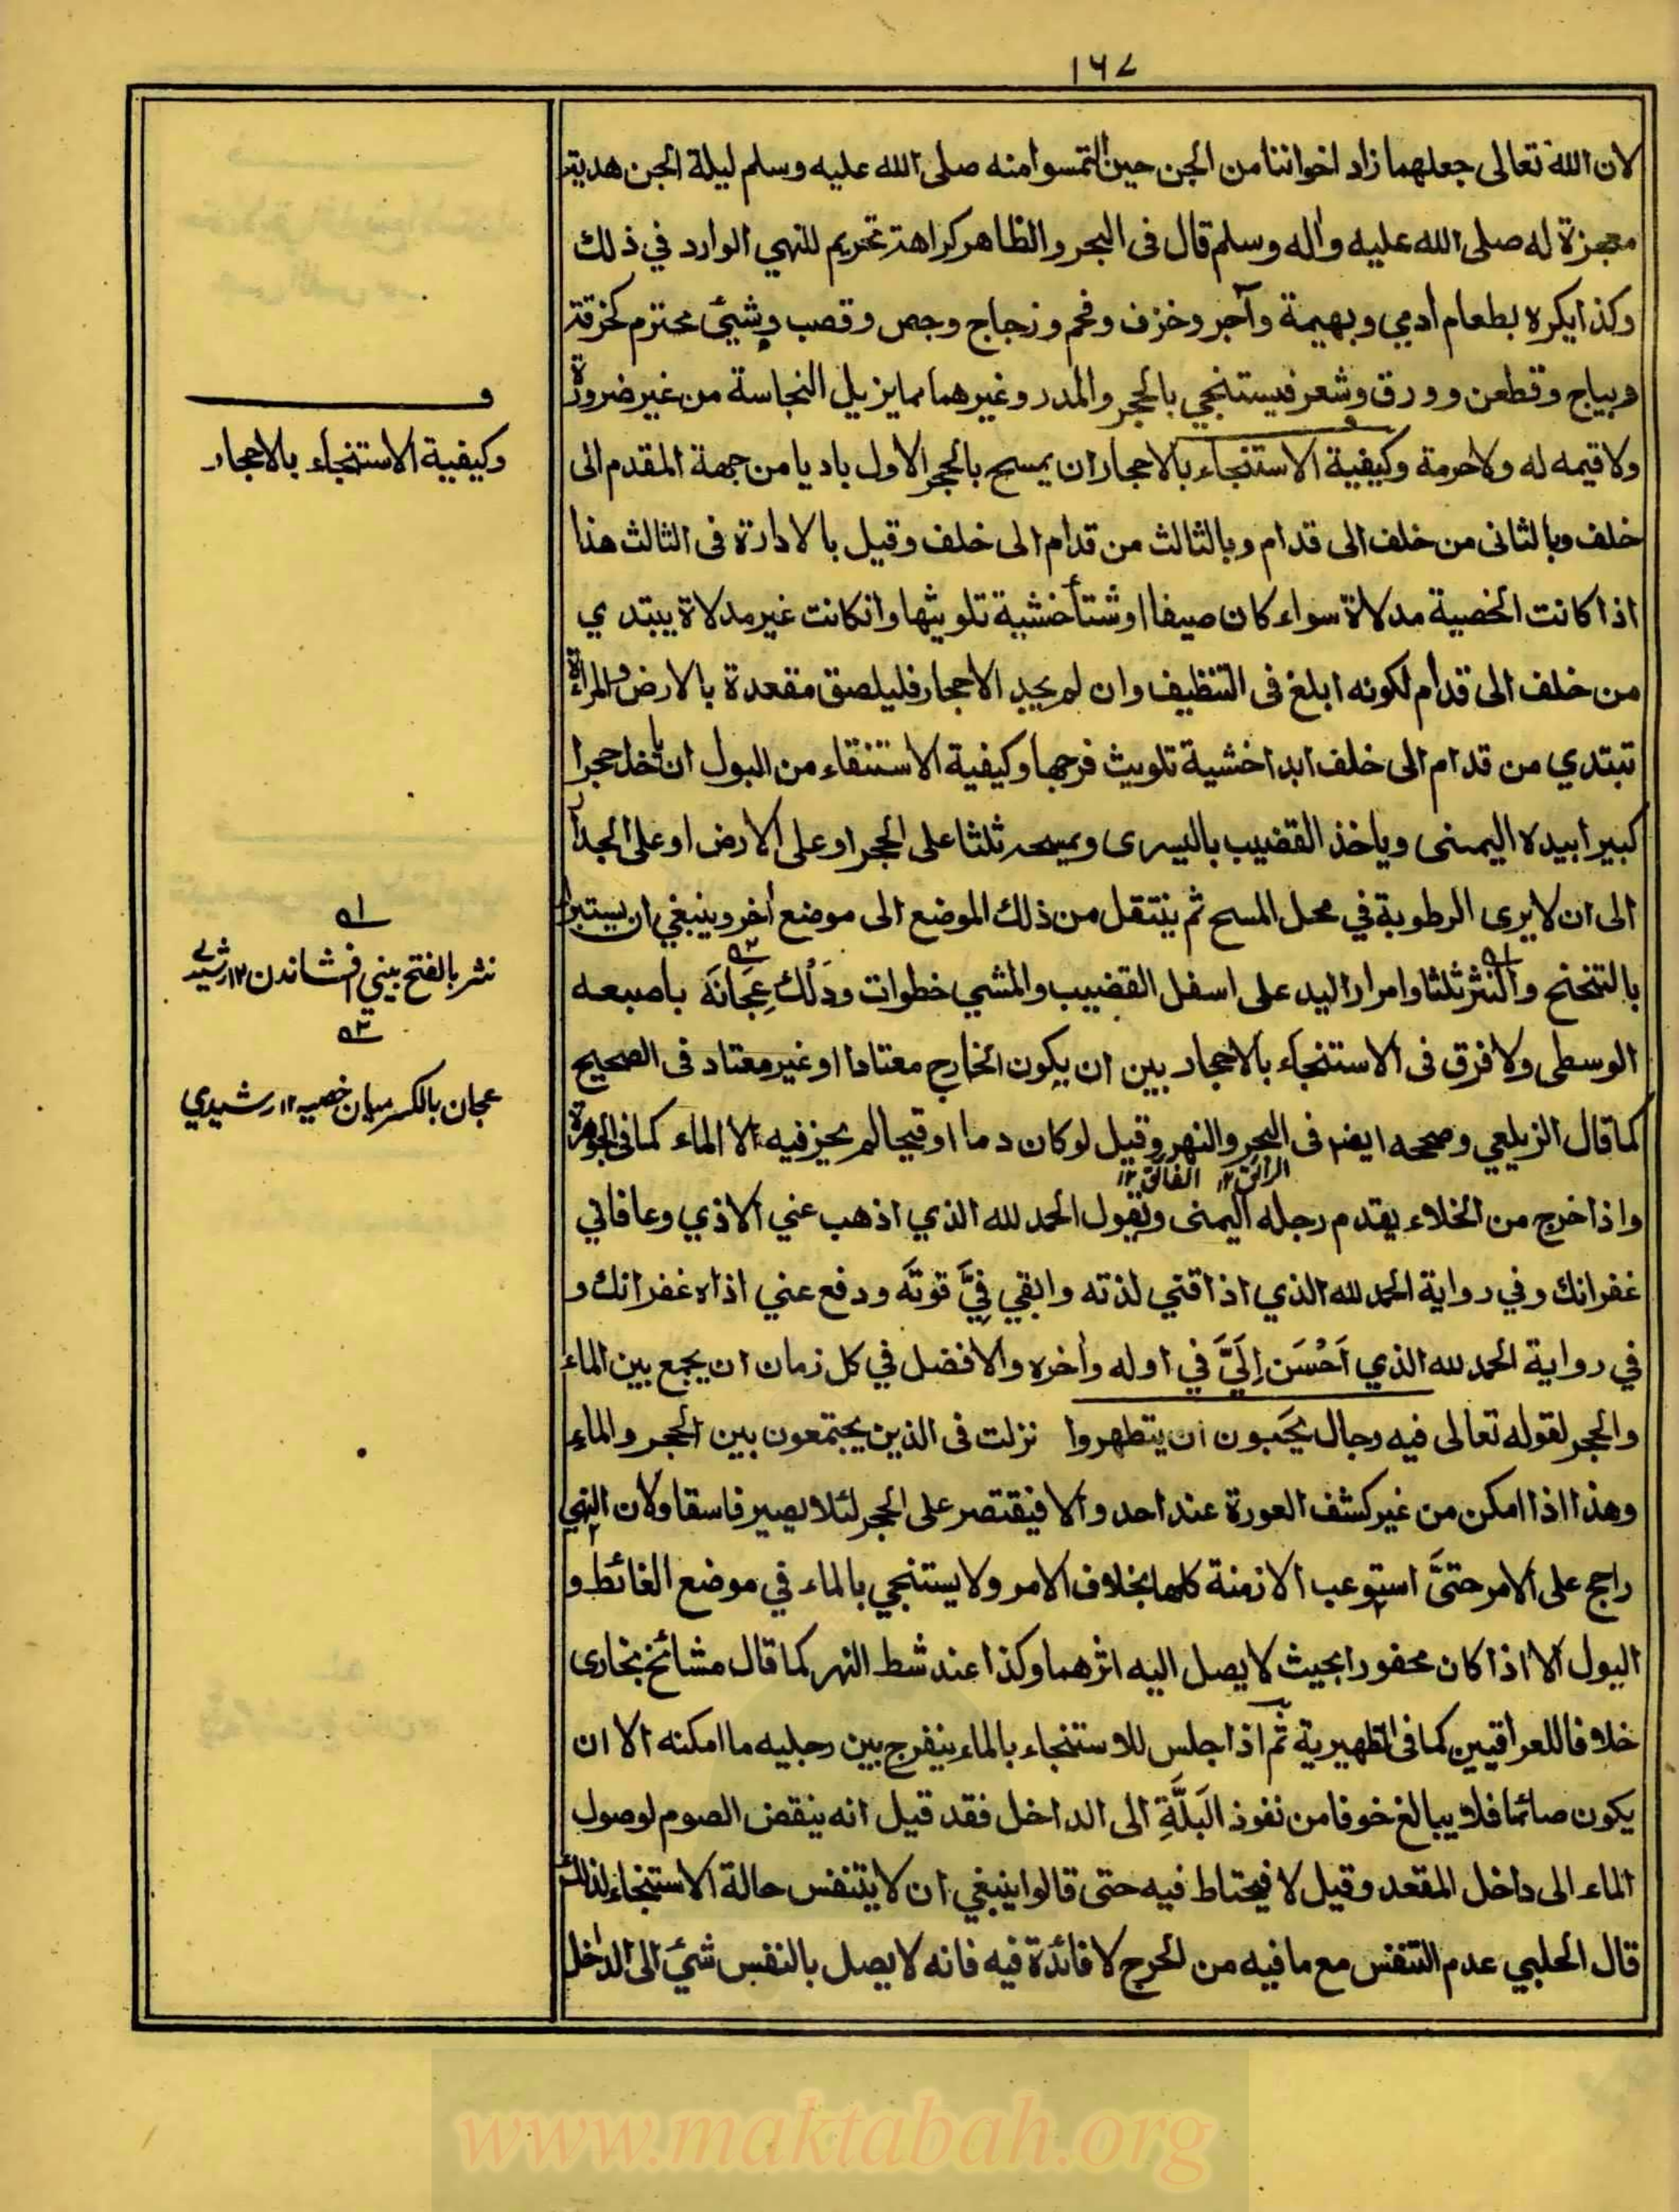 ١٦٧
لان الله تعالى جعلهما زاد اخواننا من الجن حين التمسوا منه صلى الله عليه وسلم ليلة الجن هدية
معجزة له صلى الله عليه واله وسلم قال فى البحر والظاهر كراهة تحريم للنهي الوارد في ذلك
وكذا يكره بطعام ادمي وبهيمة وآجر وخزف وفحم وزجاج وجص وقصب وشيئ محترم كخرقة
ديباج وقطن وورق وشعر فيستنجي بالحجر والمدر وغيرهما مما يزيل النجاسة من غير ضرورة
ولا قيمه له ولا حرمة وكيفية الاستنجاء بالاحجار ان يمسح بالحجر الاول باديا من جهة المقدم الى
خلف وبالثانى من خلف الى قدام وبالثالث من قدام الى خلف وقيل بالادارة فى الثالث هذا
اذا كانت الخصية مدلاة سواء كان صيفا او شتأ خشية تلويثها وانكانت غير مدلاة يبتدي
من خلف الى قدام لكونه ابلغ فى التنظيف وان لم يجد الاحجار فليلصق مقعدة بالارض والمرأة
تبتدي من قدام الى خلف ابدا خشية تلويث فرجها وكيفية الاستنقاء من البول ان ياخذ حجرا
كبيرا بيده اليمنى وياخذ القضيب باليسرى ويمسحه ثلثا على الحجر او على الارض او على الجدار
الى ان لا يرى الرطوبة في محل المسح ثم ينتقل من ذلك الموضع الى موضع اخر وينبغي ان يستبرأ
بالتنحنح والنثر ثلثا وامرار اليد على اسفل القضيب والمشي خطوات ودَلْك عِجَانَه باصبعه
الوسطى ولا فرق فى الاستنجاء بالاحجار بين ان يكون الخارج معتادا او غير معتاد فى الصحيح
كما قال الزيلعي وصححه ايضا فى البحر والنهر وقيل لو كان دما او قيحا لم يجز فيه الا الماء كما فى الجوهرة
الرائق ١٢ الفائق ١٢
واذا خرج من الخلاء يقدم رجله اليمنى ويقول الحمد لله الذي اذهب عني الاذي وعافاني
غفرانك وفي رواية الحمد لله الذي اذاقني لذته وابقي فِيَّ قوتَه ودفع عني اذاه غفرانك و
في رواية الحمد لله الذي اَحْسَن اِلَيَّ في اوله واخره والافضل في كل زمان ان يجمع بين الماء
والحجر لقوله تعالى فيه رجال يحَبون ان يتطهروا نزلت فى الذين يجتمعون بين الحجر والماء
وهذا اذا امكن من غير كشف العورة عند احد والا فيقتصر على الحجر لئلا يصير فاسقا ولان النهي
راجح على الامر حتىَّ استوعب الازمنة كلها بخلاف الامر ولا يستنجي بالماء في موضع الغائط و
البول الا اذا كان محفورا بحيث لا يصل اليه اثرهما وكذا عند شط النهر كما قال مشائخ بخارى
خلافا للعراقيين كما فى الظهيرية ثم اذا جلس للاستنجاء بالماء ينفرج بين رجليه ما امكنه الا ان
يكون صائما فلا يبالغ خوفا من نفوذ البَلَّةِ الى الداخل فقد قيل انه ينقض الصوم لوصول
الماء الى داخل المقعد وقيل لا فيحتاط فيه حتى قالوا ينبغي ان لا يتنفس حالة الاستنجاء لذلك
قال الحلبي عدم التنفس مع ما فيه من الحرج لا فائدة فيه فانه لا يصل بالنفس شيَ الى الداخل
وكيفية الاستنجاء بالاحجار
نثر بالفتح بيني افشاندن ١٢ رشيدي
عجان بالكسر ميان خصيه ١٢ رشيدي
www.maktabah.org